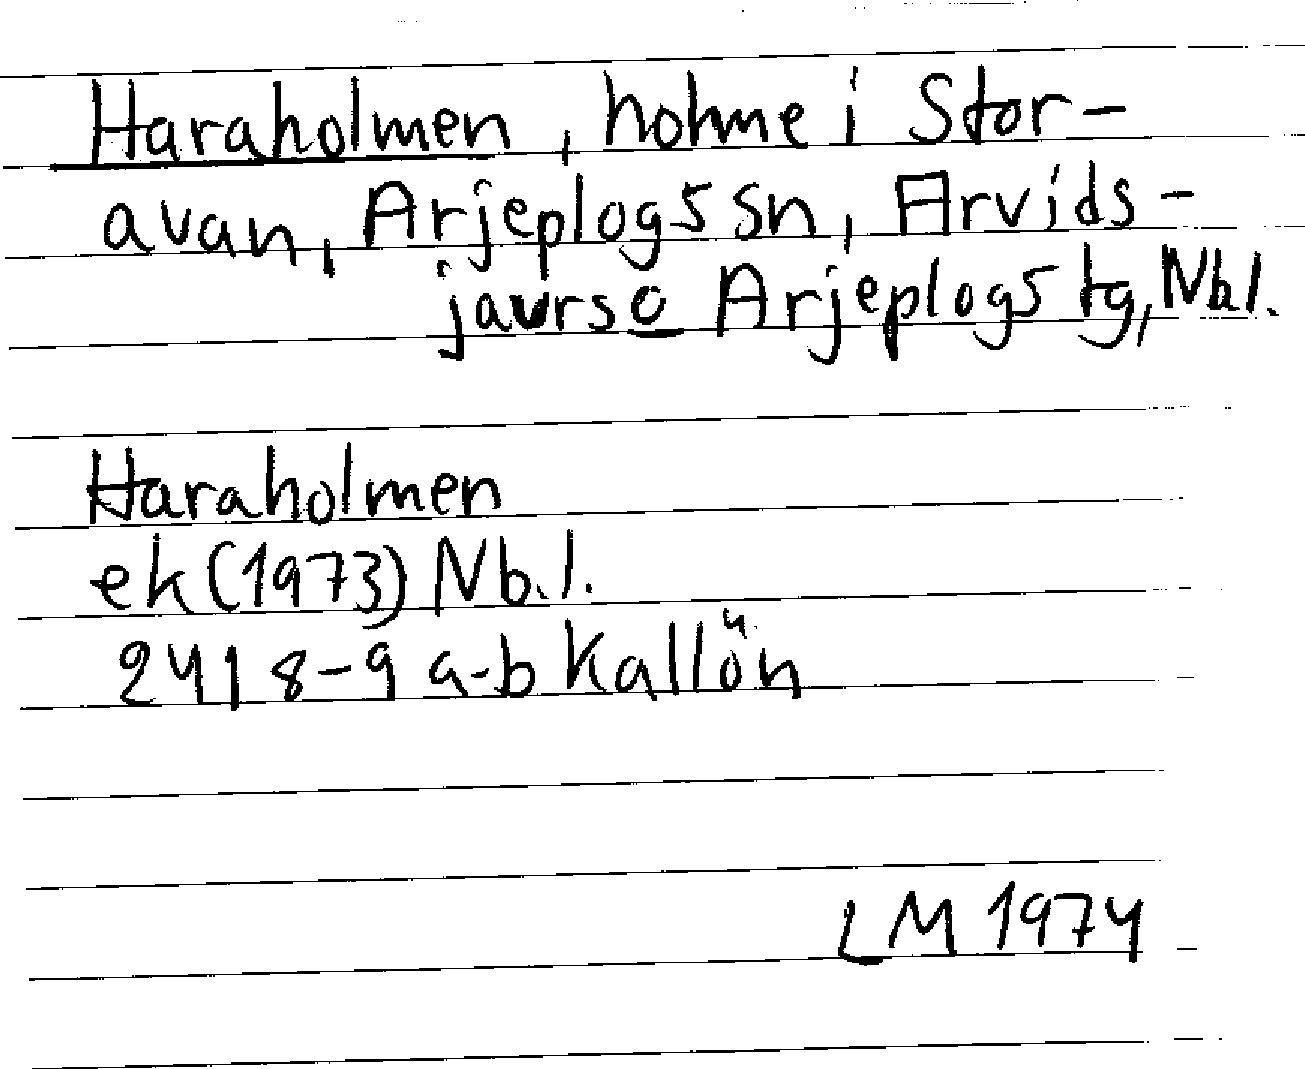 Haraholmen, holme i Stor-
avan, Arjeplogs sn, Arvids-
jaurs o Arjeplogs tg, Nb l.
Haraholmen
ek (1973) Nb. l.
24 I 8-9 a-b Kallön
LM 1974